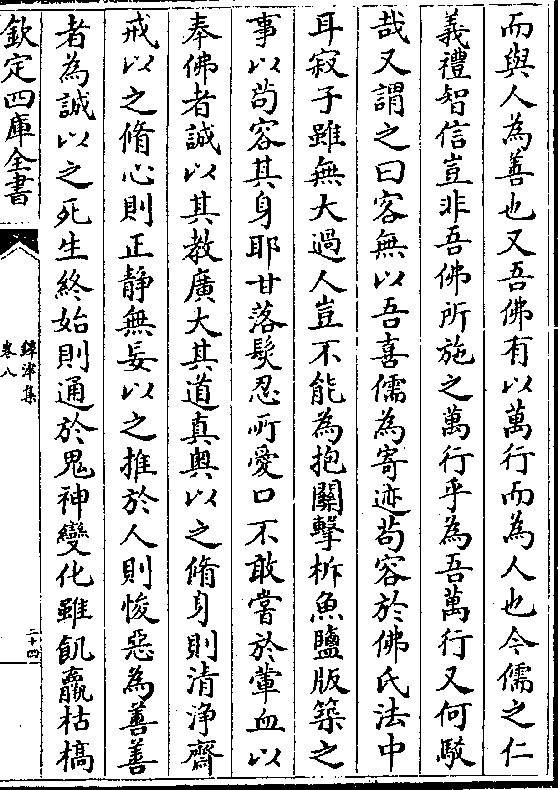 而與人為善也又吾佛有以萬行而為人也今儒之仁
義禮智信豈非吾佛所施之萬行乎為吾萬行又何駮
哉又謂之曰客無以吾喜儒為寄迹茍容於佛氏法中
耳寂子雖無大過人豈不能為抱關擊柝魚鹽版築之
事以茍容其身耶甘落髮忍所愛口不敢嘗於葷血以
奉佛者誠以其教廣大其道真奥以之脩身則清浄齋
戒以之脩心則正静無妄以之推於人則悛惡為善善
者為誠以之死生終始則通於鬼神變化雖飢羸枯槁
欽定四庫全書
鐔津集
卷八
二十四